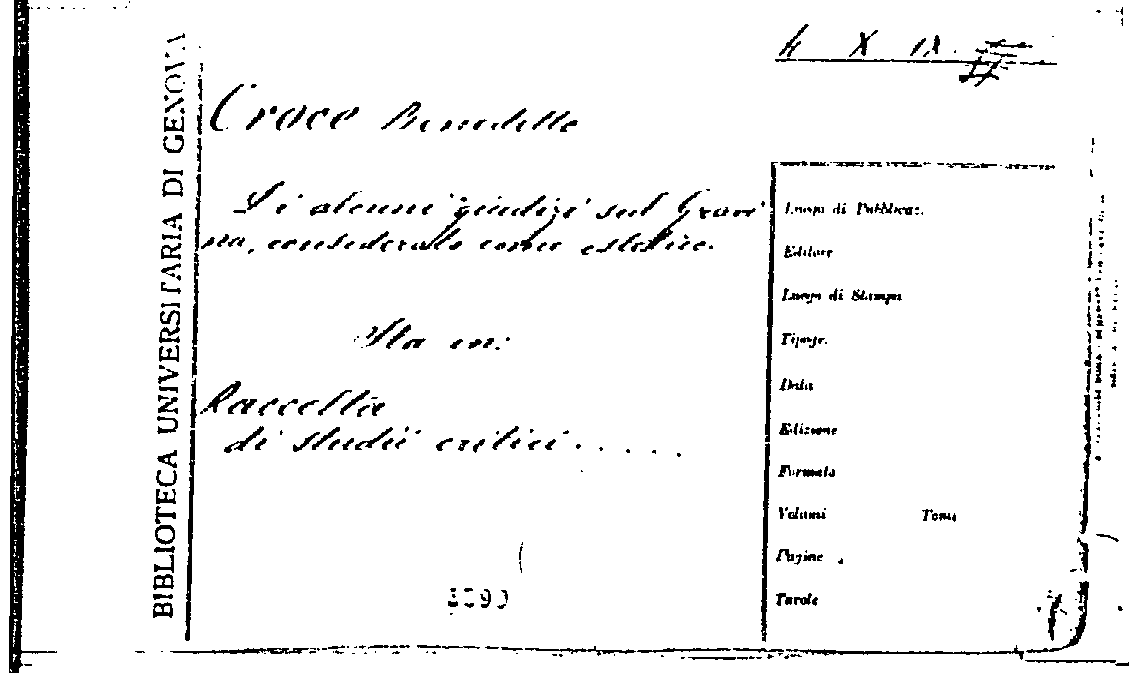 4 X IX.
BIBLIOTECA UNIVERSITARIA DI GENOVA
Croce Benedetto
Di alcuni giudizi sul Gravi
na, considerato come estetico.
Sta in:
Raccolta
di studii critici.....
Luogo di Pubblicaz.
Editore
Luogo di Stampa
Tipogr.
Data
Edizione
Formato
Volumi Tomi
Pagine
Tavole